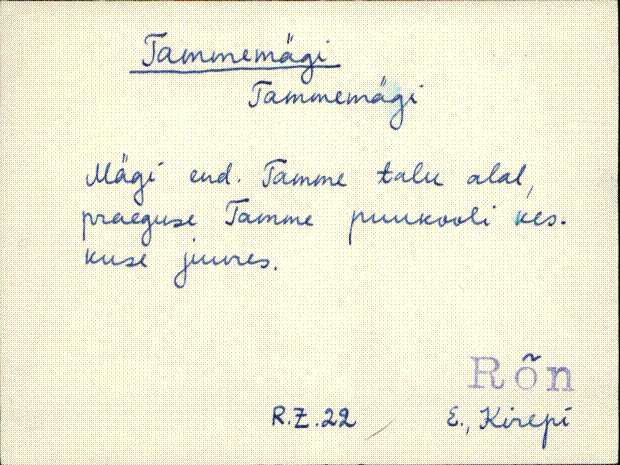 Tammemägi
Tammemägi
Mägi end. Tamme talu alal,
praeguse Tamme puukooli kes-
kuse juures.
Rõn
R.Z.22 E., Kirepi